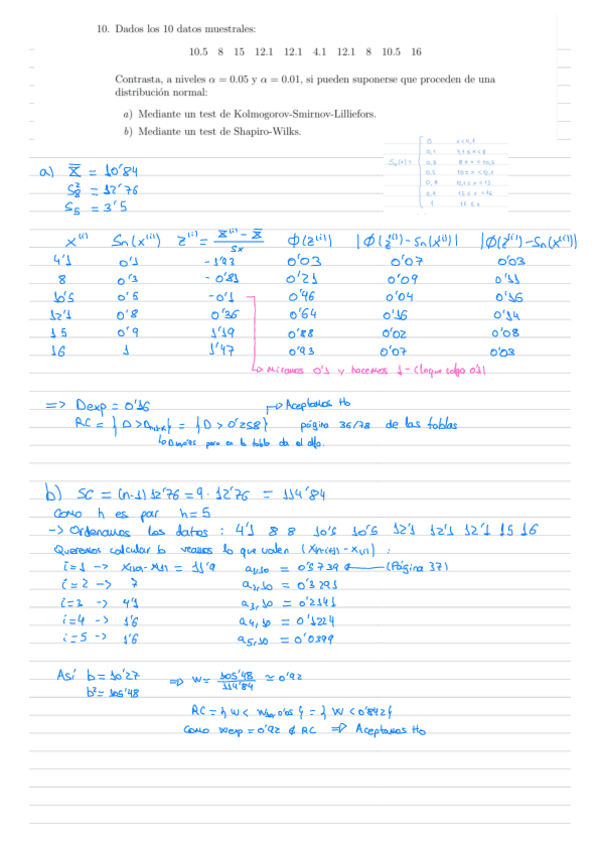 10. Dados los 10 datos muestrales:
10.5 8 15 12.1 12.1 4.1 12.1 8 10.5 16
Contrasta, a niveles α = 0.05 y α = 0.01, si pueden suponerse que proceden de una
distribución normal:
a) Mediante un test de Kolmogorov-Smirnov-Lilliefors.
b) Mediante un test de Shapiro-Wilks.
a) X̅ = 10'84
= 12'76
= 3'5
X⁽ⁱ⁾ Sn(x⁽ⁱ⁾) z⁽ⁱ⁾ = Φ(z⁽ⁱ⁾) |Φ(z⁽ⁱ⁾) - Sn(x⁽ⁱ⁾)|
4'1 0'1 0'03 0'07 0'03
8 0'3 0'21 0'09 0'11
10'5 0'5 -0'1 0'46 0'04 0'16
12'1 0'8 0'36 0'64 0'16 0'14
15 0'9 1'19 0'88 0'02 0'08
16 1 1'47 0'93 0'07 0'03
Miramos 0'1 y hacemos 1 - (lo que salga 0'1)
=> Dexp = 0'16 Aceptamos H₀
RC = { D > } = { D > 0'258 } página 36/78 de las tablas
b) SC = (n-1) 12'76 = 9 · 12'76 = 114'84
Como n es par h = 5
-> Ordenamos los datos: 4'1 8 8 10'5 10'5 12'1 12'1 12'1 15 16
Queremos calcular b veamos lo que valen
i=1 -> = 11'9 a₁,₁₀ = 0'5739 (Página 37)
i=2 -> 7 a₂,₁₀ = 0'3291
i=3 -> 4'1 a₃,₁₀ = 0'2141
i=4 -> 1'6 a₄,₁₀ = 0'1224
i=5 -> 1'6 a₅,₁₀ = 0'0399
Así b = 10'27 => W = 105'48/114'84 ≃ 0'92
b² = 105'48
RC = { W < } = { W < 0'842 }
Como Wexp = 0'92 ∉ RC => Aceptamos H₀